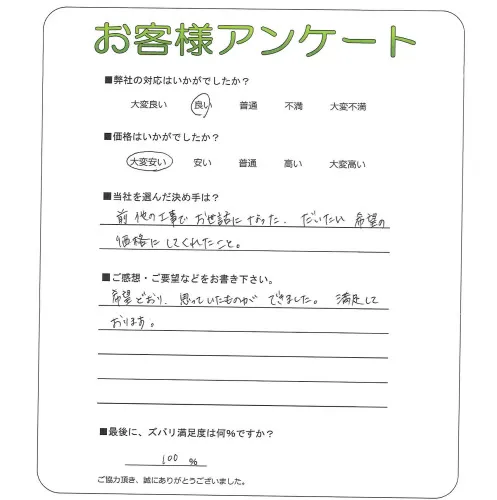 お客様アンケート
■弊社の対応はいかがでしたか?
大変良い 良い 普通 不満 大変不満
■価格はいかがでしたか?
大変安い 安い 普通 高い 大変高い
■当社を選んだ決め手は?
前他の工事でお世話になった. だいたい希望の
価格にしてくれたこと。
■ご感想・ご要望などをお書き下さい。
希望どおり、思っていたものができました。満足して
おります。
■最後に、ズバリ満足度は何%ですか?
100 %
ご協力頂き、誠にありがとうございました。